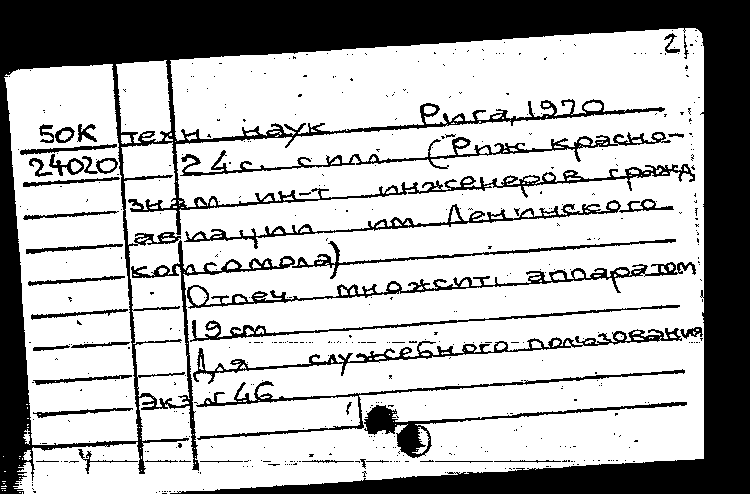 2
50К техн. наук Рига, 1970
24020 24 с. с илл. (Риж. красно-
знам. ин-т инженеров гражд.
авиации им. Ленинского
комсомола)
Отпеч. множит. аппаратом
19 см
Для служебного пользования
Экз № 46.